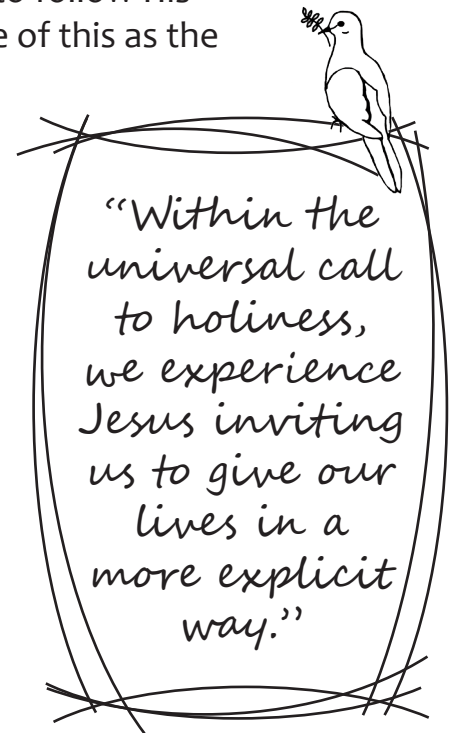 to follow His
e of this as the
“Within the
universal call
to holiness,
we experience
Jesus inviting
us to give our
lives in a
more explicit
way.”